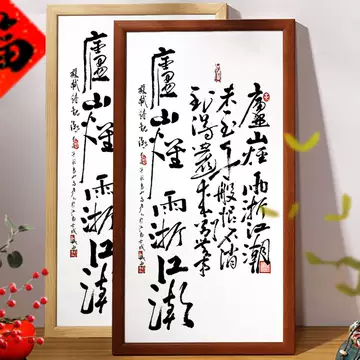 福
廬山煙雨浙江潮
蘇軾詩觀潮
廬山煙雨浙江潮
未至千般恨不消
到得還來別無事
廬山煙雨浙江潮
蘇軾詩觀潮